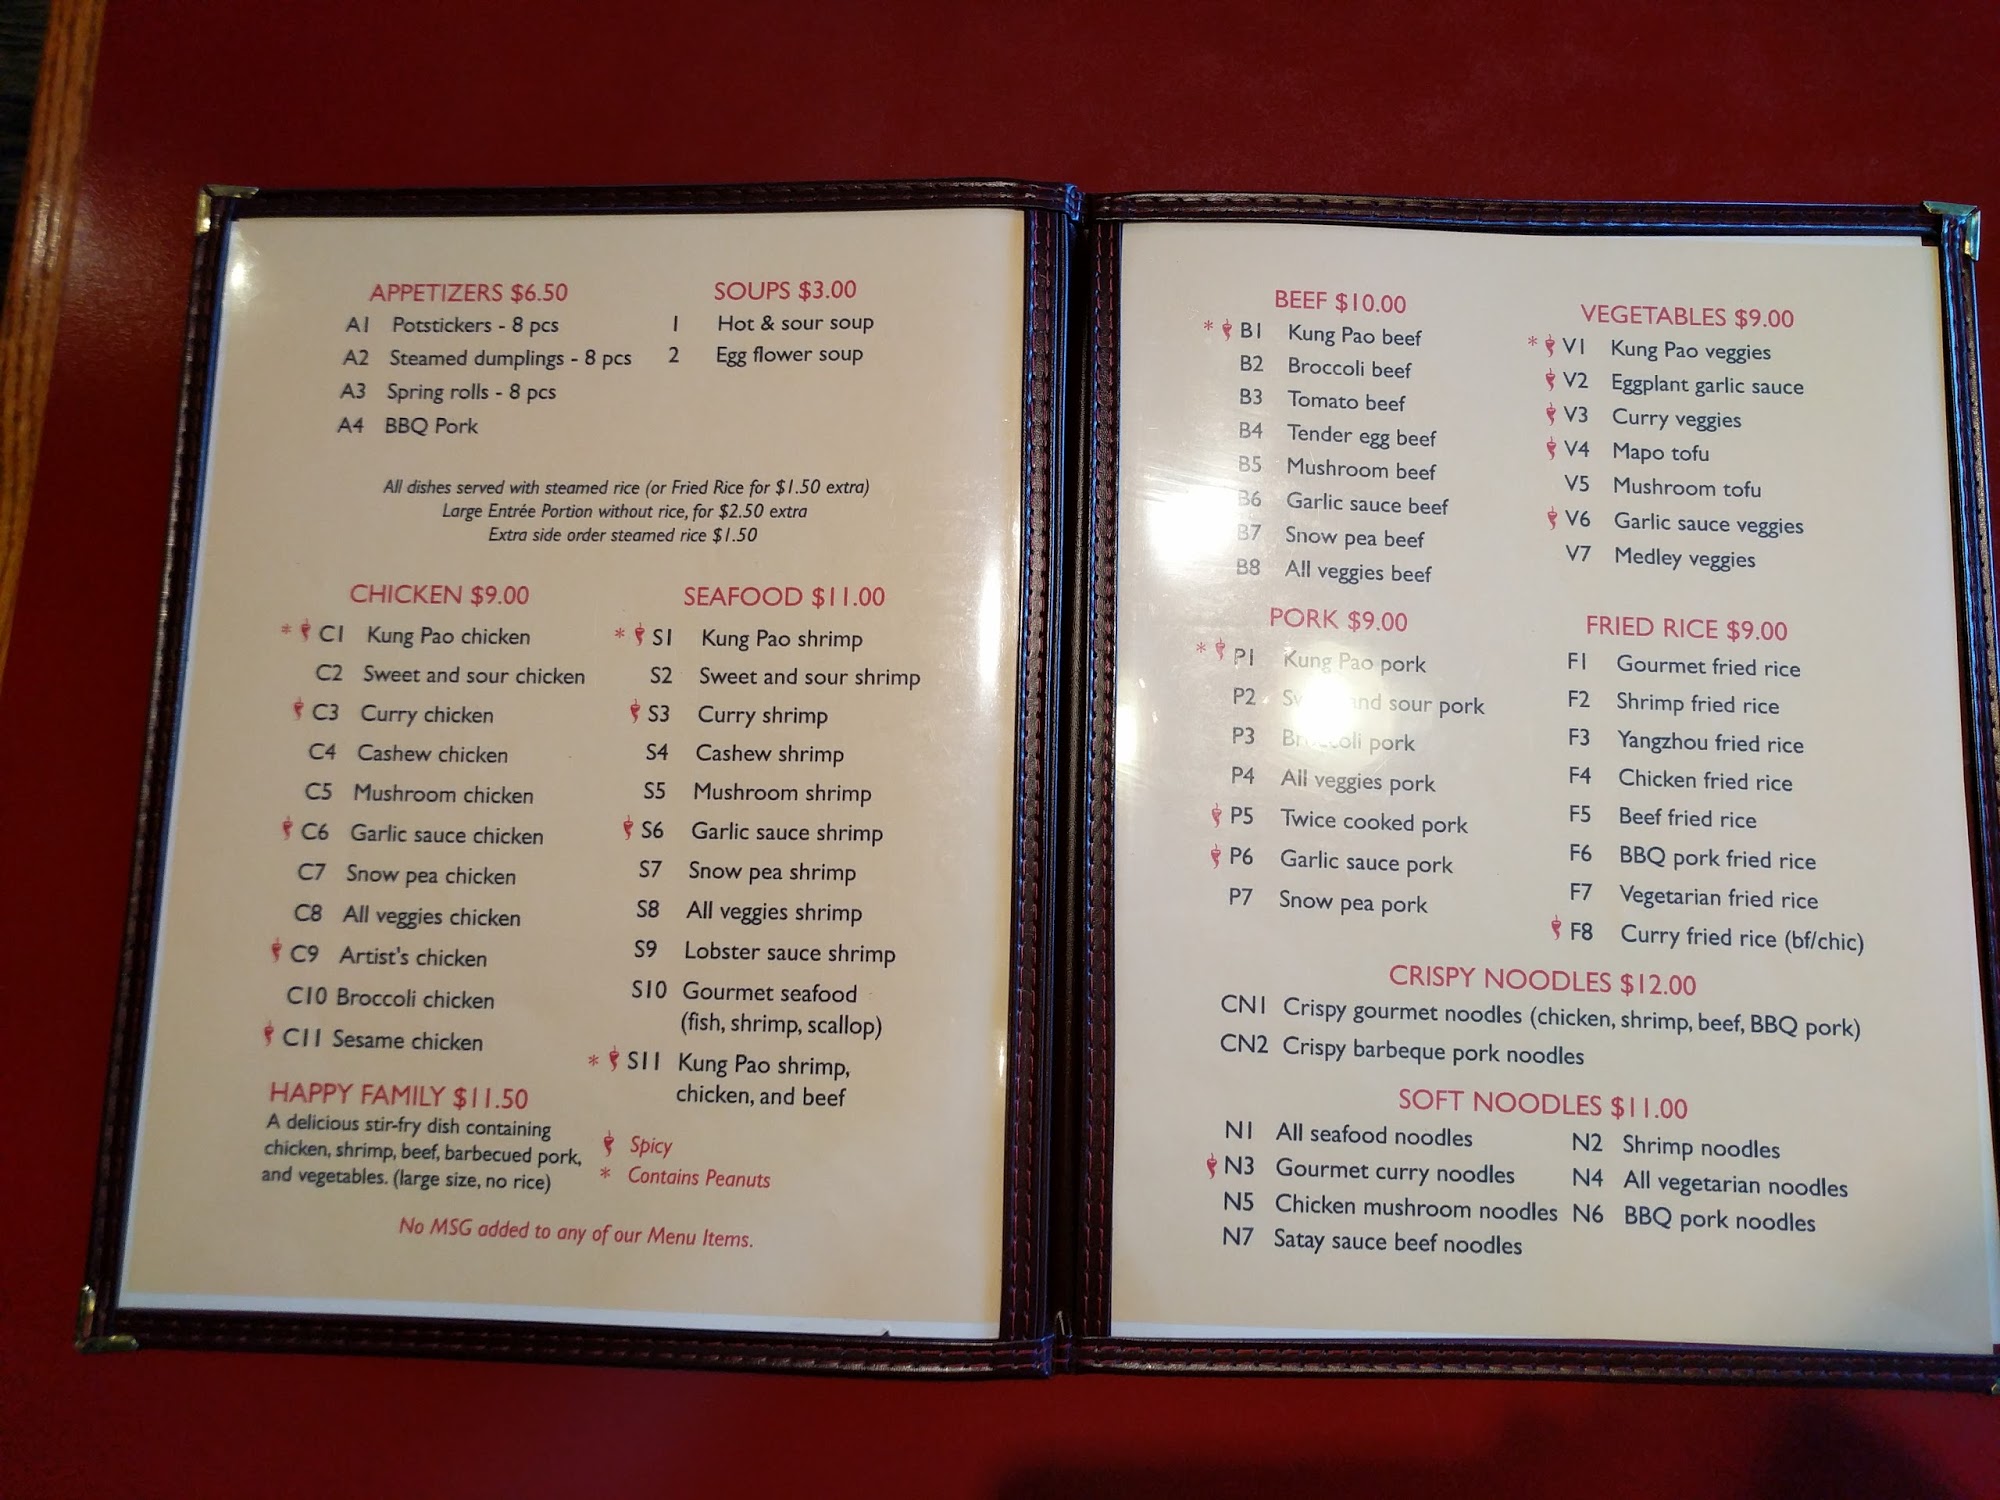 APPETIZERS $6.50
A1 Potstickers - 8 pcs
A2 Steamed dumplings - 8 pcs
A3 Spring rolls - 8 pcs
A4 BBQ Pork
SOUPS $3.00
1 Hot & sour soup
2 Egg flower soup
All dishes served with steamed rice (or Fried Rice for $1.50 extra)
Large Entrée Portion without rice, for $2.50 extra
Extra side order steamed rice $1.50
CHICKEN $9.00
* C1 Kung Pao chicken
C2 Sweet and sour chicken
C3 Curry chicken
C4 Cashew chicken
C5 Mushroom chicken
C6 Garlic sauce chicken
C7 Snow pea chicken
C8 All veggies chicken
C9 Artist's chicken
C10 Broccoli chicken
C11 Sesame chicken
HAPPY FAMILY $11.50
A delicious stir-fry dish containing
chicken, shrimp, beef, barbecued pork,
and vegetables. (large size, no rice)
SEAFOOD $11.00
* S1 Kung Pao shrimp
S2 Sweet and sour shrimp
S3 Curry shrimp
S4 Cashew shrimp
S5 Mushroom shrimp
S6 Garlic sauce shrimp
S7 Snow pea shrimp
S8 All veggies shrimp
S9 Lobster sauce shrimp
S10 Gourmet seafood
(fish, shrimp, scallop)
* S11 Kung Pao shrimp,
chicken, and beef
Spicy
* Contains Peanuts
No MSG added to any of our Menu Items.
BEEF $10.00
* B1 Kung Pao beef
B2 Broccoli beef
B3 Tomato beef
B4 Tender egg beef
B5 Mushroom beef
B6 Garlic sauce beef
B7 Snow pea beef
B8 All veggies beef
PORK $9.00
* P1 Kung Pao pork
P2 Sweet and sour pork
P3 Broccoli pork
P4 All veggies pork
P5 Twice cooked pork
P6 Garlic sauce pork
P7 Snow pea pork
VEGETABLES $9.00
* V1 Kung Pao veggies
V2 Eggplant garlic sauce
V3 Curry veggies
V4 Mapo tofu
V5 Mushroom tofu
V6 Garlic sauce veggies
V7 Medley veggies
FRIED RICE $9.00
F1 Gourmet fried rice
F2 Shrimp fried rice
F3 Yangzhou fried rice
F4 Chicken fried rice
F5 Beef fried rice
F6 BBQ pork fried rice
F7 Vegetarian fried rice
F8 Curry fried rice (bf/chic)
CRISPY NOODLES $12.00
CN1 Crispy gourmet noodles (chicken, shrimp, beef, BBQ pork)
CN2 Crispy barbeque pork noodles
SOFT NOODLES $11.00
N1 All seafood noodles N2 Shrimp noodles
N3 Gourmet curry noodles N4 All vegetarian noodles
N5 Chicken mushroom noodles N6 BBQ pork noodles
N7 Satay sauce beef noodles